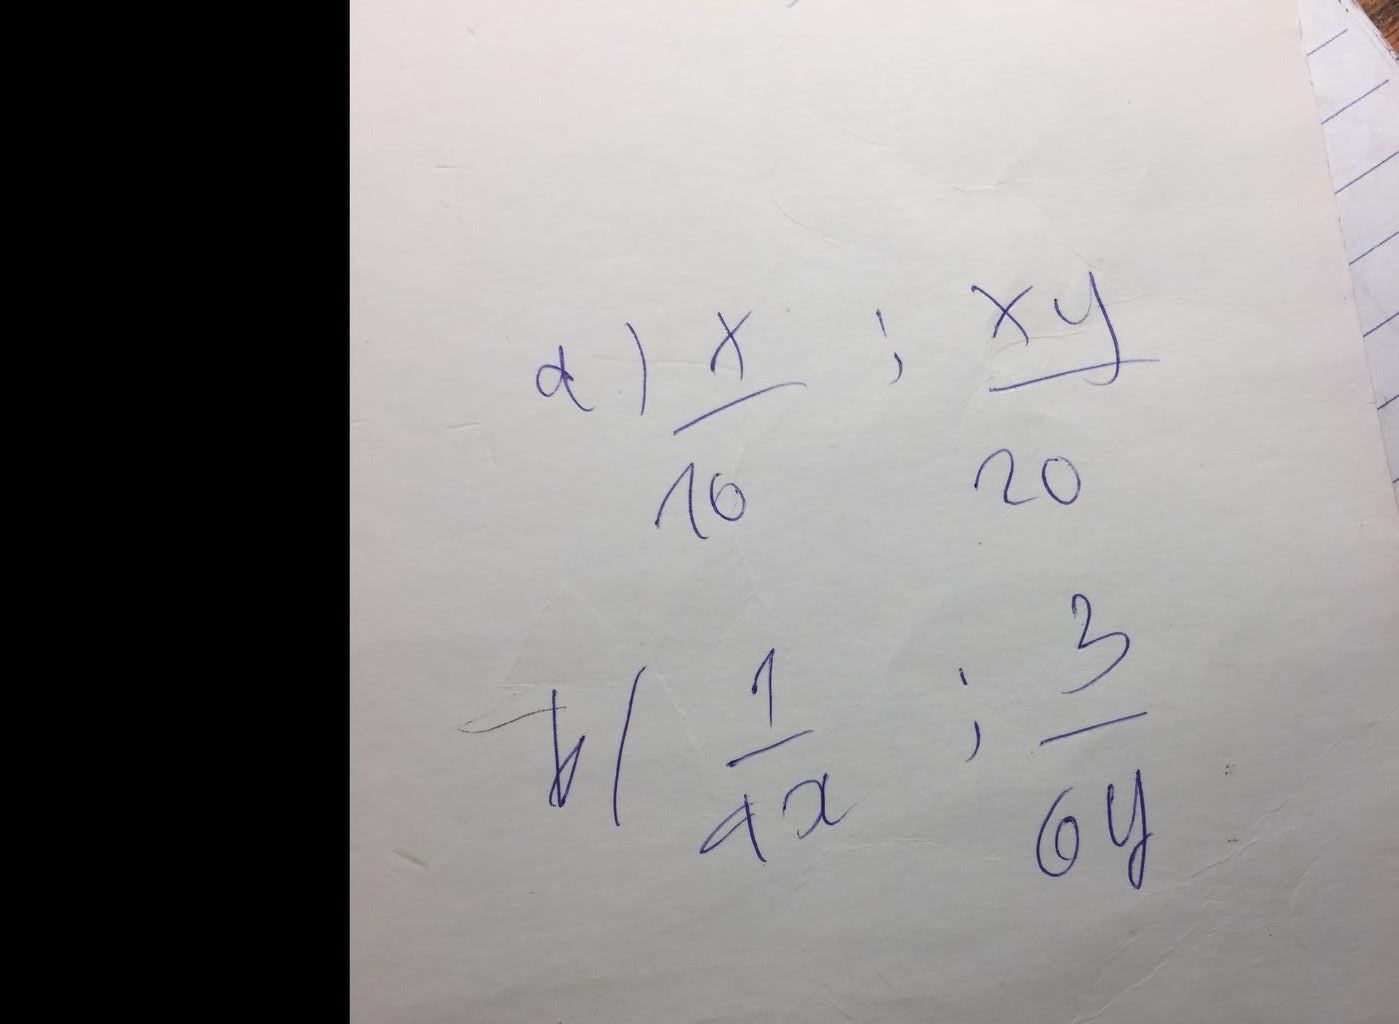 a) x/10 ; xy/20
b) 1/4x ; 3/6y